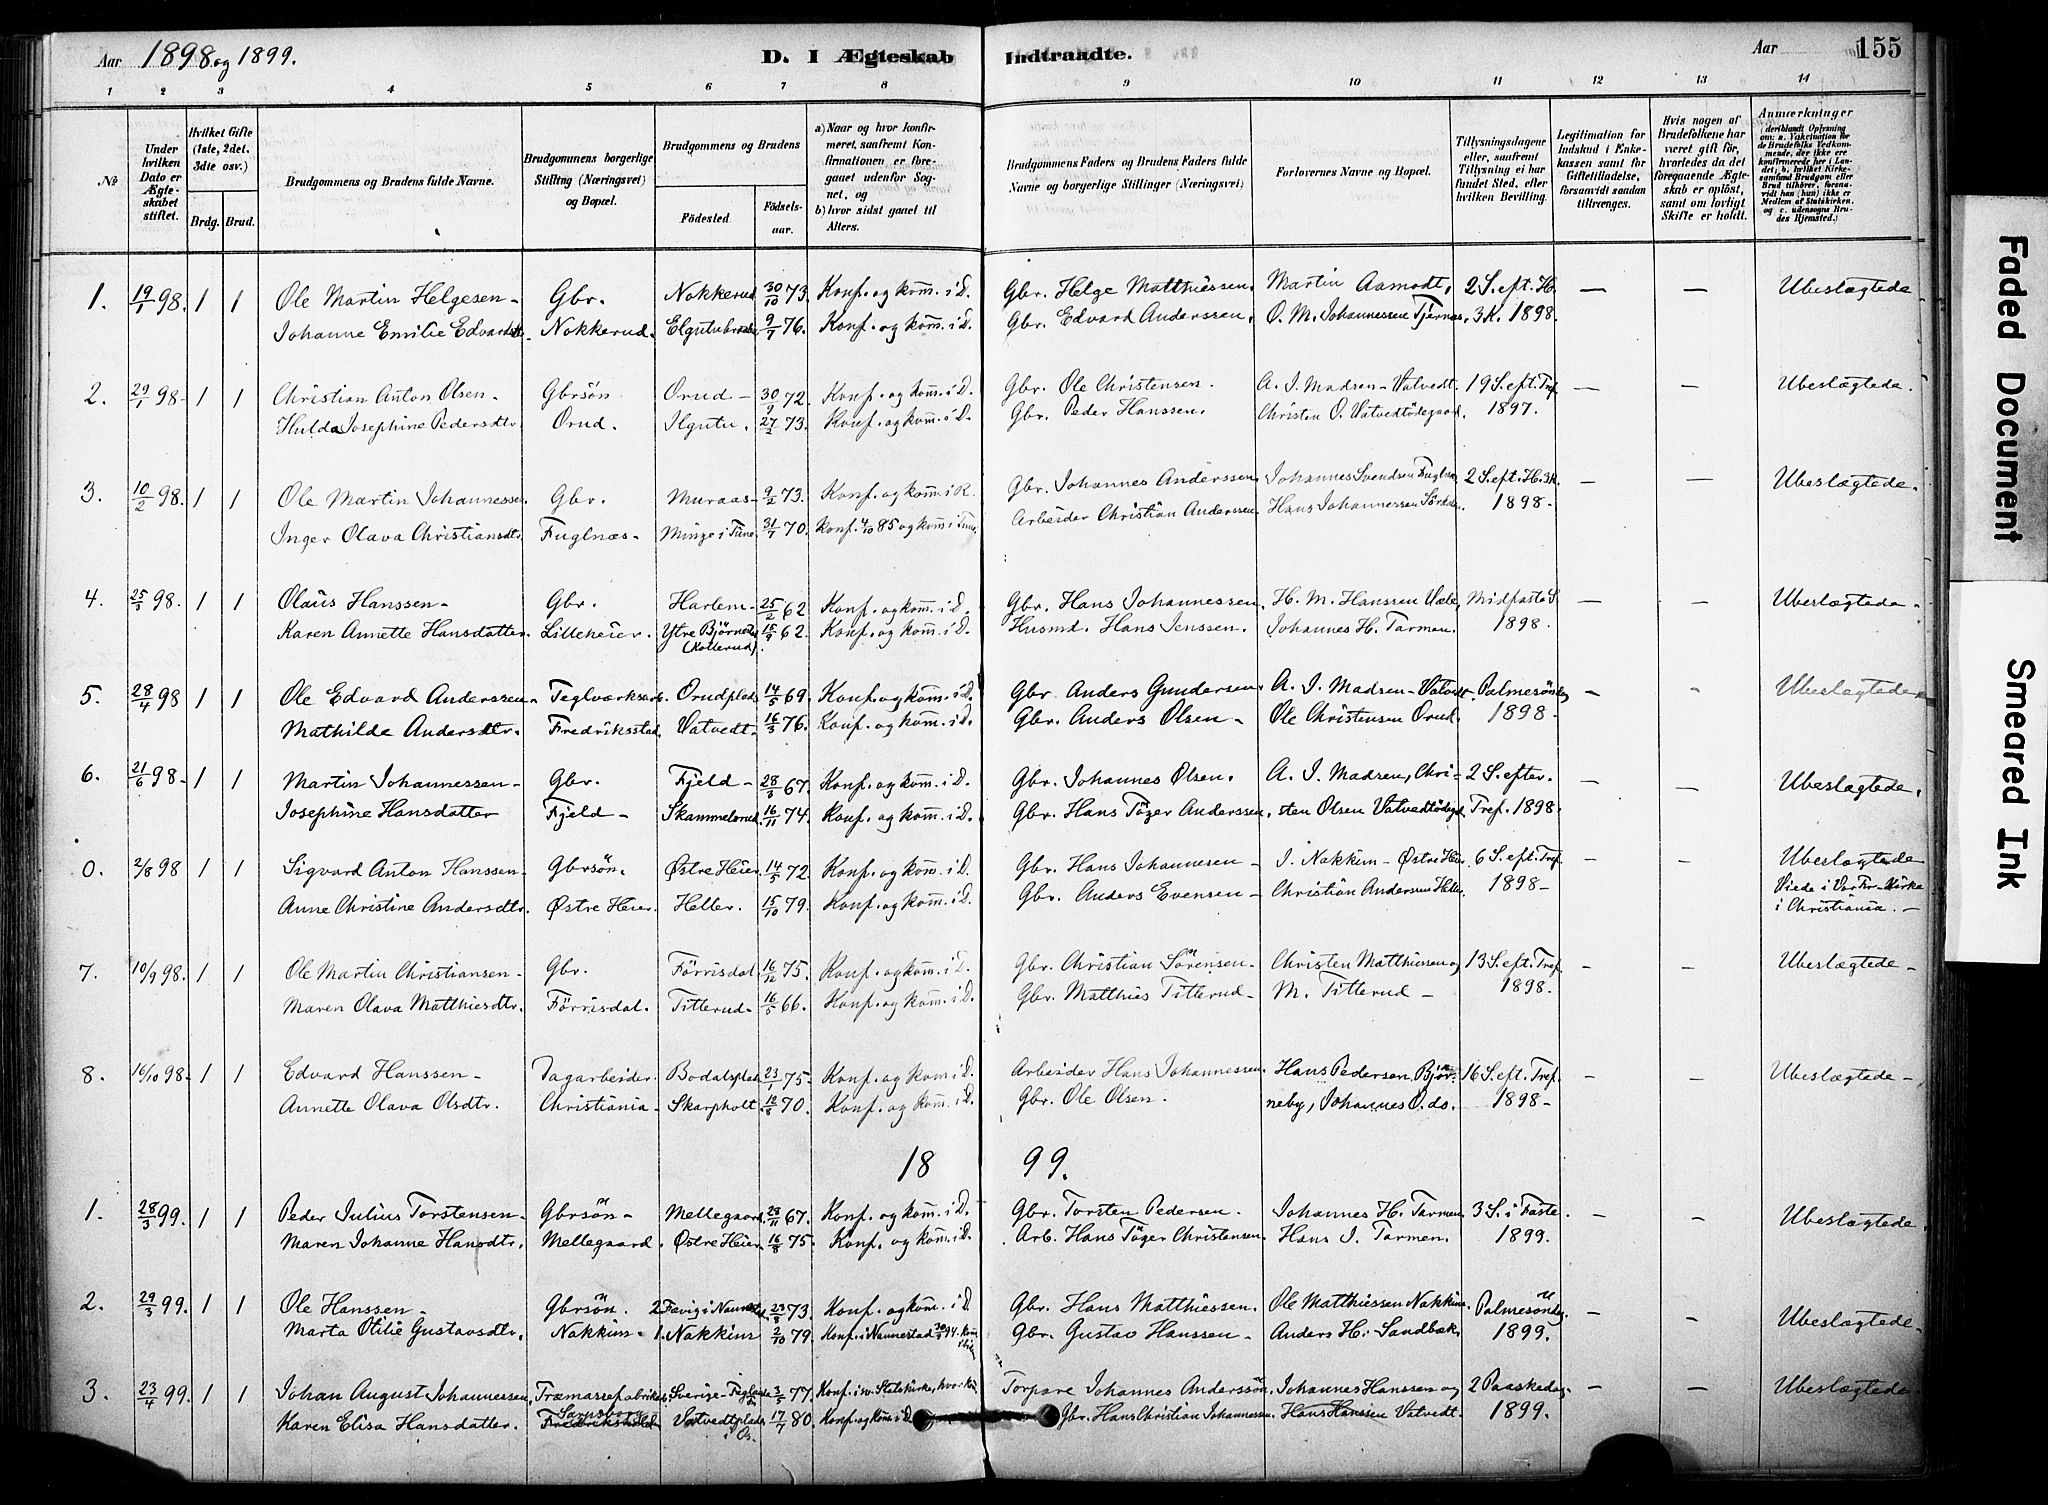 Aar 1898 og 1899.
D. I Ægteskab Indtraadte.
Aar 155
1 2 3 4 5 6 7 8 9 10 11 12 13 14
№
Under hvilken Dato er Ægteskabet stiftet.
Hvilket Gifte (1ste, 2det, 3die osv.)
Brdg. Brud.
Brudgommens og Brudens fulde Navne.
Brudgommens borgerlige Stilling (Næringsvei) og Bopæl.
Brudgommens og Brudens
Födested.
Födselsaar.
a) Naar og hvor konfirmeret, saafremt Konfirmationen er foregaaet udenfor Sognet, og
b) hvor sidst gaaet til Alters.
Brudgommens Faders og Brudens Faders fulde Navne og borgerlige Stillinger (Næringsvei)
Forlovernes Navne og Bopæl.
Tillysningsdagene eller, saafremt Tillysning ei har fundet Sted, efter hvilken Bevilling.
Legitimation for Indskud i Enkekassen samt for Giftetilladelse, forsaavidt saadan tiltrænges.
Hvis nogen af Brudefolkene har været gift för, hvorledes da det foregaaende Ægteskab er oplöst, samt om lovligt Skifte er holdt.
Anmærkninger
(deriblandt Oplysning om: a. Vakcination for de Brudefolks Vedkommende, der ikke ere konfirmerede her i Landet; b. hvilket Kirkesamfund Brudgom eller Brud tilhörer, forsaavidt han (hun) ikke er Medlem af Statskirken, og c. udensogns Brudes Hjemsted.)
1. 19/1 98. 1 1 Ole Martin Helgesen - Gbr. Nokkerud 30/10 73. Konf. og kom. i D. Gbr. Helge Matthiessen. Martin Aamodt, 2 S. eft. H. — — Ubeslægtede
Johanne Emilie Edvardsdtr. Nokkerud. 9/7 76. Konf. og kom. i D. Gbr. Edvard Anderssen. O. M. Johannessen Tjernæs. 3 K. 1898.
2. 29/1 98 1 1 Christian Anton Olsen - Gbrsön Orud - 30/9 72. Konf. og kom. i D. Gbr. Ole Christensen. A. I. Madsen - Vatvedt. 19 S. eft. Tref. — — Ubeslægtede.
Hulda Josephine Pedersdtr. Orud. Ilgutu. 27/2 73. Konf. og kom. i D. Gbr. Peder Hanssen. Christen O. Vatvedtödegaard. 1897.
3. 10/2 98. 1 1 Ole Martin Johannessen Gbr. Muraas - 9/2 73. Konf. og kom. i R. Gbr. Johannes Anderssen. Johannes Svendsen Fuglnæs 2 S. eft. H. 3 K. — — Ubeslægtede.
Inger Olava Christiansdtr. Fuglnæs - Minge i Tune 31/7 70. Konf. 4/10 85 og kom. i Tune. Arbeider Christian Anderssen. Hans Johannessen 1898.
4. 25/3 98. 1 1 Olaus Hanssen - Gbr. Harlem - 25/2 62. Konf. og kom. i D. Gbr. Hans Johannessen. H. M. Hanssen Midfaste S. — — Ubeslægtede.
Karen Annette Hansdatter. Lilleheier. Ytre Bjørnerød (Kollerud). 15/9 62. Konf. og kom. i D. Husmd. Hans Jenssen. Johannes H. Tarmen. 1898.
5. 28/4 98 1 1 Ole Edvard Anderssen - Teglværksarb. Orudplads 14/5 69. Konf. og kom. i D. Gbr. Anders Gundersen. A. I. Madsen - Vatvedt. Palmesöndag — - Ubeslægtede
Mathilde Andersdtr. Fredriksstad. Vatvedt. 16/3 76. Konf. og kom. i D. Gbr. Anders Olsen - Ole Christensen Orud. 1898 -
6. 21/6 98 - 1 1 Martin Johannessen - Gbr. Fjeld - 28/3 67. Konf. og kom. i D. Gbr. Johannes Olsen. A. I. Madsen, Chri- 2 S. efter. — — Ubeslægtede.
Josephine Hansdatter Fjeld - Skammelsrud. 16/11 74. Konf. og kom. i D. Gbr. Hans Töger Anderssen. sten Olsen Vatvedtödegd. Tref. 1898.
0. 2/8 98 1 1 Sigvard Anton Hanssen - Gbrsön. Østre Heier 14/5 72. Konf. og kom. i D. Gbr. Hans Johannesen - I. Nakkim - Østre Heier 6 S. eft. Tref. — — Ubeslægtede
Anne Christine Andersdtr. Østre Heier. Heller. 15/10 79. Konf. og kom. i D. Gbr. Anders Evensen - Christian Anderssen Heller. 1898 - Viede i Vor Fr. Kirke
i Christiania. —
7. 10/9 98. 1 1 Ole Martin Christiansen - Gbr. Förrisdal 16/12 75. Konf. og kom. i D. Gbr. Christian Sörensen - Christen Matthiessen og 13 S. eft. Tref. — — Ubeslægtede -
Maren Olava Matthiesdtr. Förrisdal. Titterud - 16/5 66. Konf. og kom. i D. Gbr. Matthies Titterud - M. Titterud - 1898.
8. 16/10 98 - 1 1 Edvard Hanssen - Dagarbeider. Bodalsplads 23/1 75. Konf. og kom i D. Arbeider Hans Johannessen. Hans Pedersen Bjør- 16 S. eft. Tref. — — Ubeslægtede -
Annette Olava Olsdtr. Christiania - Skarpholt. 12/8 70. Konf. og kom. i D. Gbr. Ole Olsen. neby, Johannes O. ds. 1898 -
1899.
1. 28/3 99. 1 1 Peder Julius Torstensen - Gbrsön - Mellegaard 23/11 67. Konf. og kom. i D. Gbr. Torsten Pedersen. Johannes H. Tarmen 3 S. i Faste — — Ubeslægtede
Maren Johanne Hansdtr. Mellegaard. Østre Heier. 16/8 75. Konf. og kom. i D. Arb. Hans Töger Christensen. Hans J. Tarmen. 1899.
2. 29/3 99. 1 1 Ole Hanssen - Gbrsön. 2. i Nannestad. 23/8 73. Konf. og kom. i D. Gbr. Hans Matthiessen. Ole Matthiessen Nakkim. Palmesöndag — — Ubeslægtede -
Marta Otilie Gustavsdtr. Nakkim - 1. Nakkim 2/10 79. Konf. i Nannestad 94. Gbr. Gustav Hanssen - Anders H. Sandbæk 1899.
3. 23/4 99. 1 1 Johan August Johannessen. Træmassefabrikarb. Sverige - 3/5 77. Konf. i sv. Statskirke, hvor kom. Torpare Johannes Anderssön. Johannes Hanssen og 2 Paaskedag — — Ubeslægtede
Karen Elisa Hansdatter. Sarpsborg Fredrikshald Vatvedtplads i Øs. 17/7 80. Konf. og kom. i D. Gbr. Hans Christian Johannessen. Hans Hanssen Vatvedt. 1899.
Faded Document
Smeared Ink